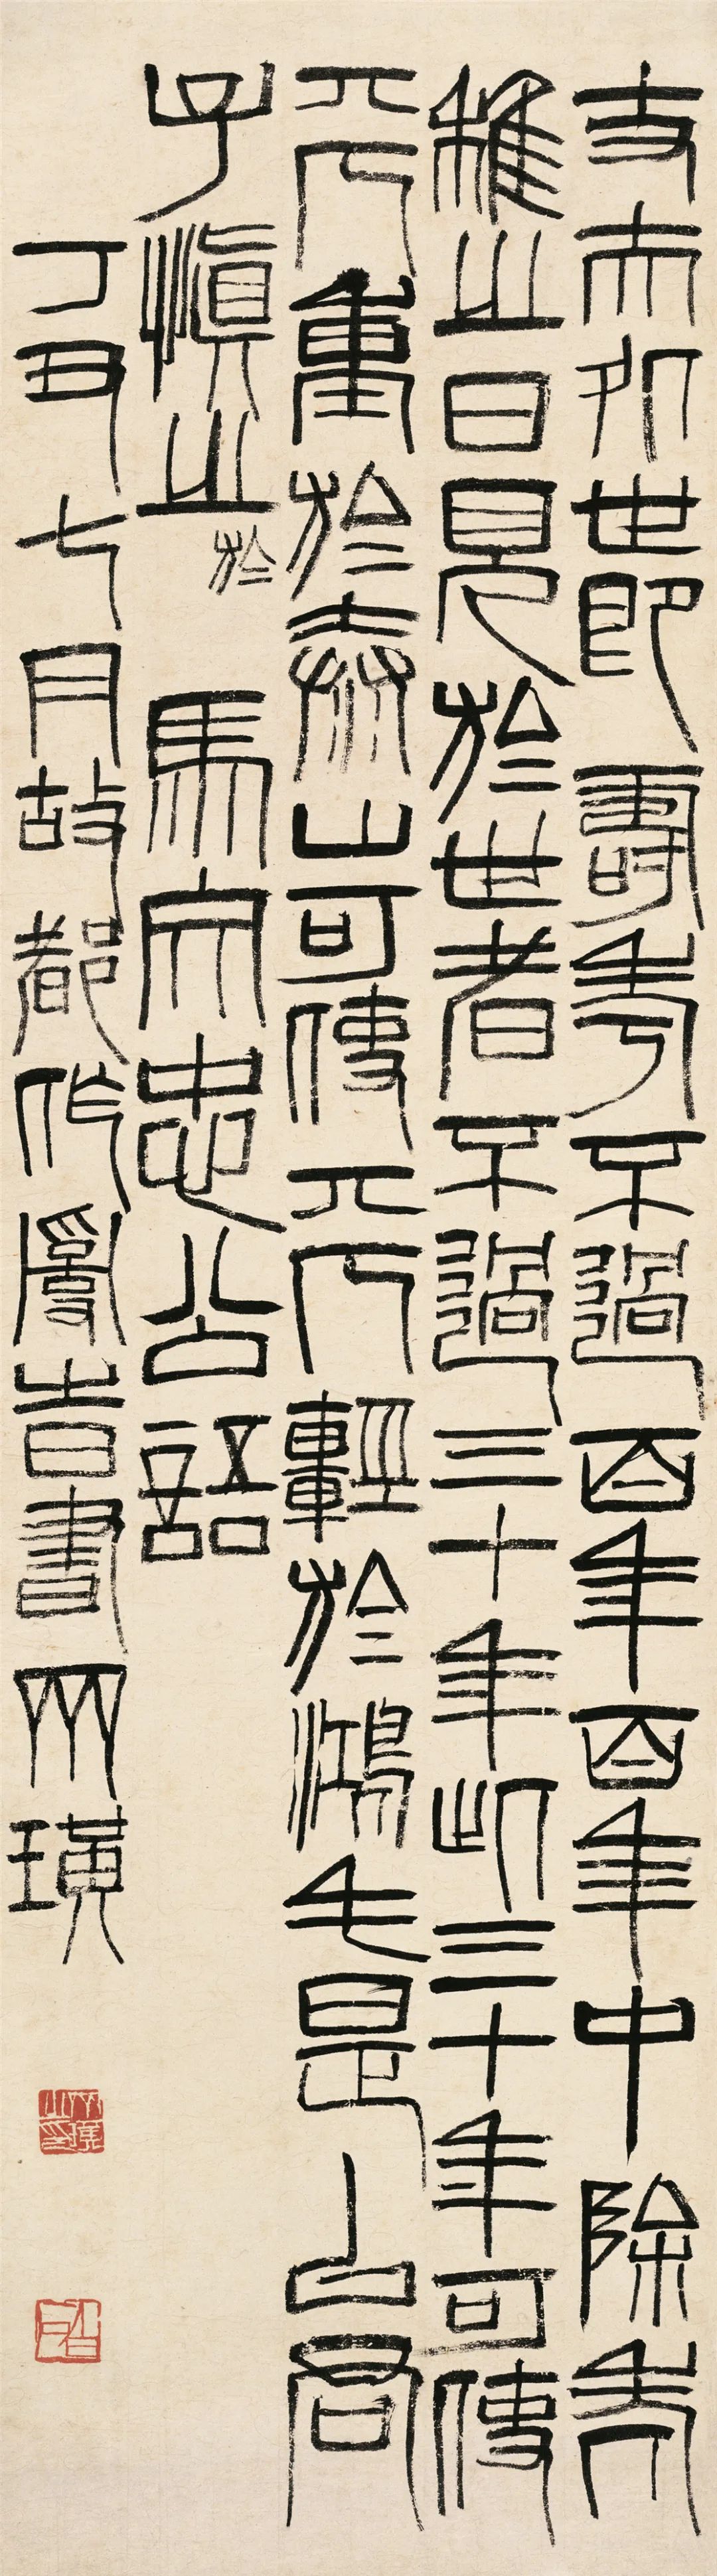 丈夫処世即壽考不過百年百年中除老
稚之日見於世者不過三十年此三十年可使
其重於泰山可使其輕於鴻毛是以君
子慎之於 馬文忠公語
丁丑七月故都作亂旹書齊璜